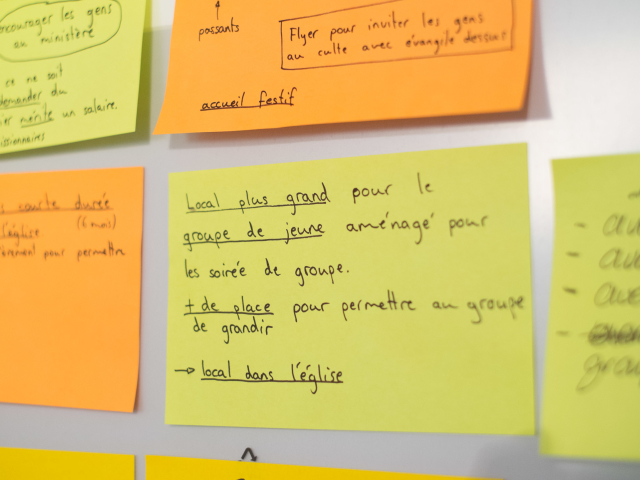 encourager les gens
au ministère
ce ne soit
demander du
mérite un salaire.
missionnaires
passants
Flyer pour inviter les gens
au culte avec évangile dessus
accueil festif
courte durée
l'église (6 mois)
pour permettre
Local plus grand pour le
groupe de jeune aménagé pour
les soirée de groupe.
+ de place pour permettre au groupe
de grandir
→ local dans l'église